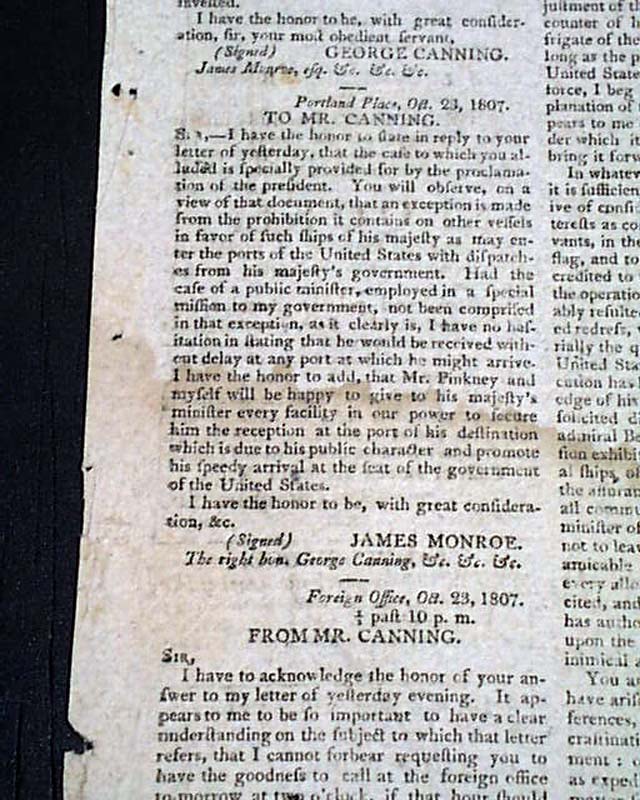 invested.
I have the honor to be, with great consider-
ation, sir, your most obedient servant,
(Signed) GEORGE CANNING.
James Monroe, esq. &c. &c. &c.
Portland Place, Oct. 23, 1807.
TO MR. CANNING.
SIR,—I have the honor to state in reply to your
letter of yesterday, that the case to which you al-
luded is specially provided for by the proclama-
tion of the president. You will observe, on a
view of that document, that an exception is made
from the prohibition it contains on other vessels
in favor of such ships of his majesty as may en-
ter the ports of the United States with dispatch-
es from his majesty's government. Had the
case of a public minister, employed in a special
mission to my government, not been comprised
in that exception, as it clearly is, I have no hes-
itation in stating that he would be received with-
out delay at any port at which he might arrive.
I have the honor to add, that Mr. Pinkney and
myself will be happy to give to his majesty's
minister every facility in our power to secure
him the reception at the port of his destination
which is due to his public character and promote
his speedy arrival at the seat of the government
of the United States.
I have the honor to be, with great considera-
tion, &c.
(Signed) JAMES MONROE.
The right hon. George Canning, &c. &c. &c.
Foreign Office, Oct. 23, 1807.
past 10 p. m.
FROM MR. CANNING.
SIR,
I have to acknowledge the honor of your an-
swer to my letter of yesterday evening. It ap-
pears to me to be so important to have a clear
understanding on the subject to which that letter
refers, that I cannot forbear requesting you to
have the goodness to call at the foreign office
to-morrow at two o'clock, if that hour should
justment of
counter of
frigate of the
long as the
United State
force, I beg
planation of
pears to me
der which it
bring it forw
In whatev
it is sufficien
ive of consi
terests as co
vants, in the
flag, and to
credited to
the operatio
ably resulte
ed redress,
rially the q
United Sta
cution has
edge of his
solicited di
admiral Be
sion exhibi
al ships, of
the assuran
all commu
minister of
not to leav
amicable
every alle
cited, and
has autho
upon the
inimical a
You a
have aris
ferences,
crastinati
ment : o
as expe